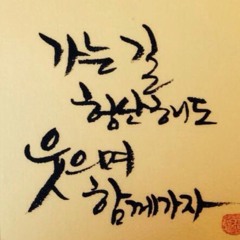 가는 길
험산해도
웃으며
함께가자